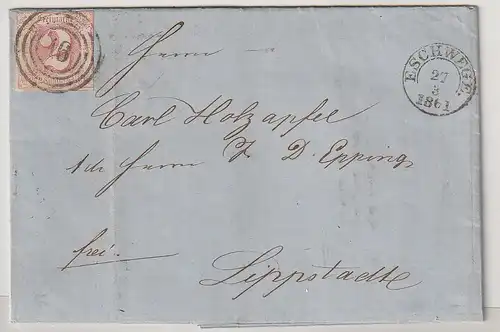 26
ESCHWEGE
27
3
1861
Herrn
Carl Holzapfel
Herrn F. D. Epping
frei.
Lippstadt